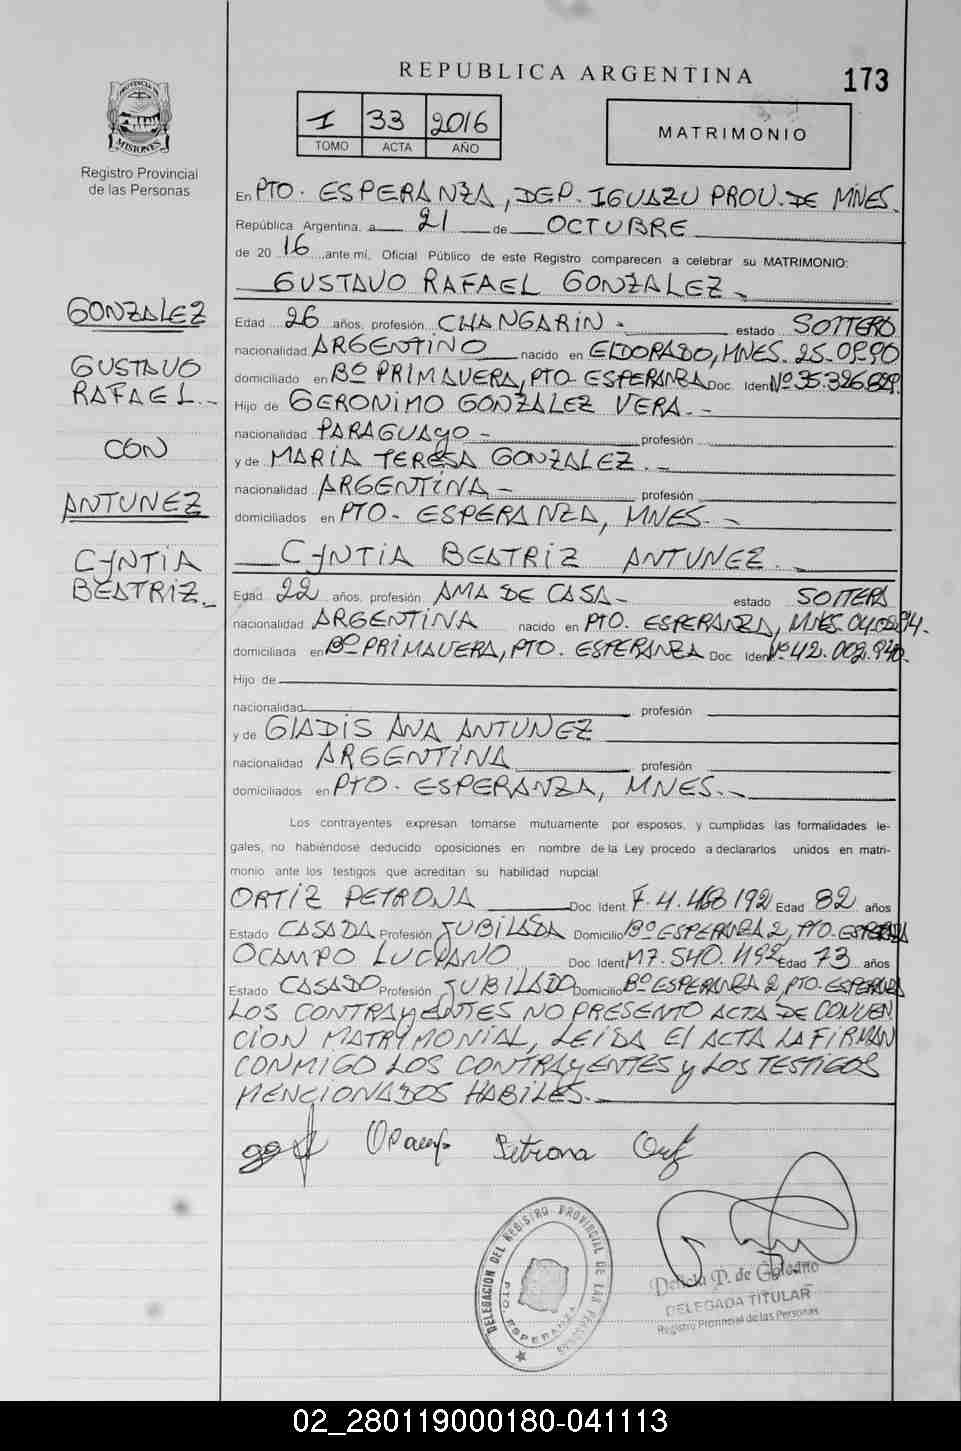 REPUBLICA ARGENTINA
173
PROVINCIA DE
MISIONES
Registro Provincial
de las Personas
I 33 2016
TOMO ACTA AÑO
MATRIMONIO
En PTO. ESPERANZA, DEP. IGUAZU PROV. DE MNES.
República Argentina, a 21 de OCTUBRE
de 20 16 ,ante mí, Oficial Público de este Registro comparecen a celebrar su MATRIMONIO:
GUSTAVO RAFAEL GONZALEZ.-
GONZALEZ
GUSTAVO
RAFAEL.-
CON
ANTUNEZ
CYNTIA
BEATRIZ.-
Edad 26 años, profesión CHANGARIN - estado SOLTERO
nacionalidad ARGENTINO nacido en ELDORADO, MNES. 25-09-90
domiciliado en Bº PRIMAVERA, PTO- ESPERANZA Doc. Iden Nº 35.326.829.
Hijo de GERONIMO GONZALEZ VERA.-
nacionalidad PARAGUAYO - profesión
y de MARIA TERESA GONZALEZ.-
nacionalidad ARGENTINA - profesión
domiciliados en PTO- ESPERANZA, MNES.-
CYNTIA BEATRIZ ANTUNEZ.-
Edad 22 años, profesión AMA DE CASA - estado SOLTERA
nacionalidad ARGENTINA nacido en PTO. ESPERANZA, MNES. 04.02.94.
domiciliada en Bº PRIMAVERA, PTO. ESPERANZA Doc. Iden Nº 42.002.940.
Hijo de
nacionalidad profesión
y de GLADIS ANA ANTUNEZ
nacionalidad ARGENTINA profesión
domiciliados en PTO. ESPERANZA, MNES.-
Los contrayentes expresan tomarse mutuamente por esposos, y cumplidas las formalidades le-
gales, no habiéndose deducido oposiciones en nombre de la Ley procedo a declararlos unidos en matri-
monio ante los testigos que acreditan su habilidad nupcial
ORTIZ PETRONA Doc. Ident. F. 4.468.192 Edad 82 años
Estado CASADA Profesión JUBILADA Domicilio Bº ESPERANZA 2, PTO-ESPERANZA
OCAMPO LUCIANO Doc. Ident M7.540.492 Edad 73 años
Estado CASADO Profesión JUBILADO Domicilio Bº ESPERANZA 2, PTO-ESPERANZA
LOS CONTRAYENTES NO PRESENTO ACTA DE CONVEN
CION MATRYMONIAL, LEIDA El ACTA LA FIRMAN
CONMIGO LOS CONTRAYENTES y LOS TESTIGOS
MENCIONADOS HABILES.-
Ocampo Petrona Ortiz
DELEGACION DEL REGISTRO PROVINCIAL DE LAS PERSONAS
PTO. ESPERANZA
Delicia D. de Galeano
DELEGADA TITULAR
Registro Provincial de las Personas
02_280119000180-041113